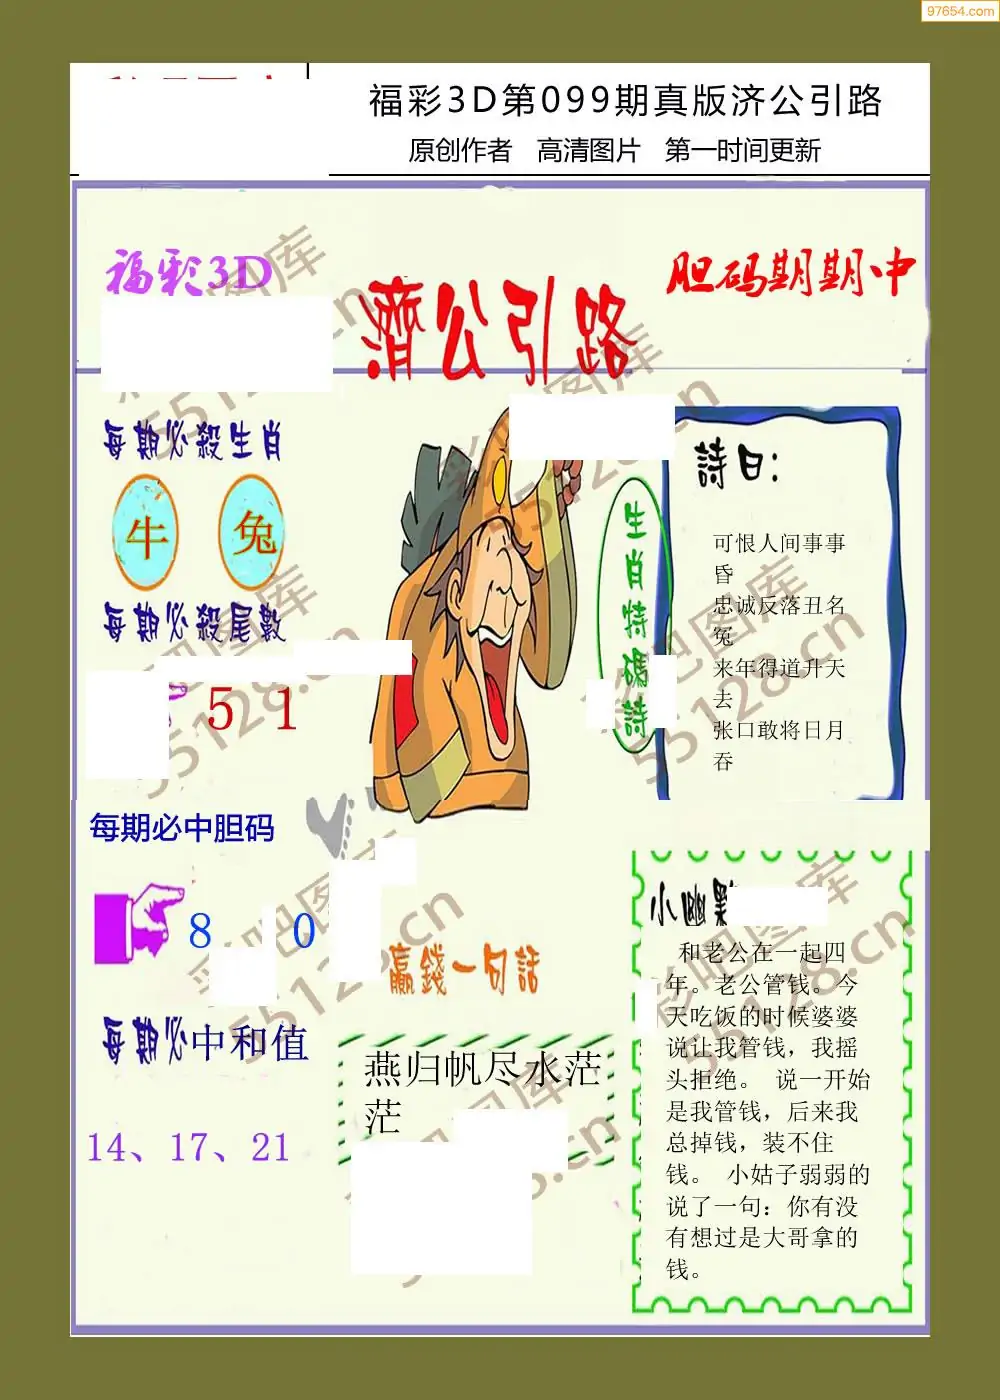 97654.com
福彩3D第099期真版济公引路
原创作者 高清图片 第一时间更新
福彩3D
胆码期期中
濟公引路
每期必殺生肖
牛 兔
每期必殺尾數
5 1
生肖特碼詩
詩曰:
可恨人间事事
昏
忠诚反落丑名
冤
来年得道升天
去
张口敢将日月
吞
每期必中胆码
8 0
赢錢一句話
每期必中和值
14、17、21
燕归帆尽水茫
茫
小幽默
和老公在一起四
年。老公管钱。今
天吃饭的时候婆婆
说让我管钱，我摇
头拒绝。 说一开始
是我管钱，后来我
总掉钱，装不住
钱。 小姑子弱弱的
说了一句：你有没
有想过是大哥拿的
钱。
彩吧图库
55128.cn